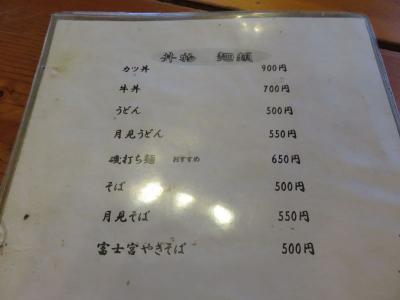 丼物 麺類
カツ丼 900円
牛丼 700円
うどん 500円
月見うどん 550円
磯打ち麺 おすすめ 650円
そば 500円
月見そば 550円
富士宮やきそば 500円